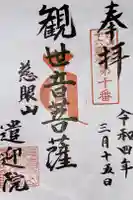 奉拝
第十番
令和四年
三月十五日
観世音菩薩
慈眼山
遣迎院